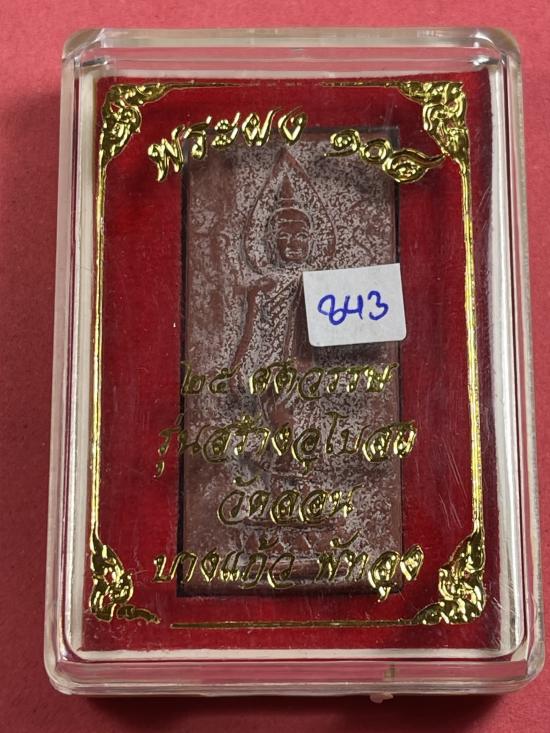 พระผง ๑๐๘
843
๒๕ ศตวรรษ
รุ่นสร้างอุโบสถ
วัดลอน
บางแก้ว พัทลุง